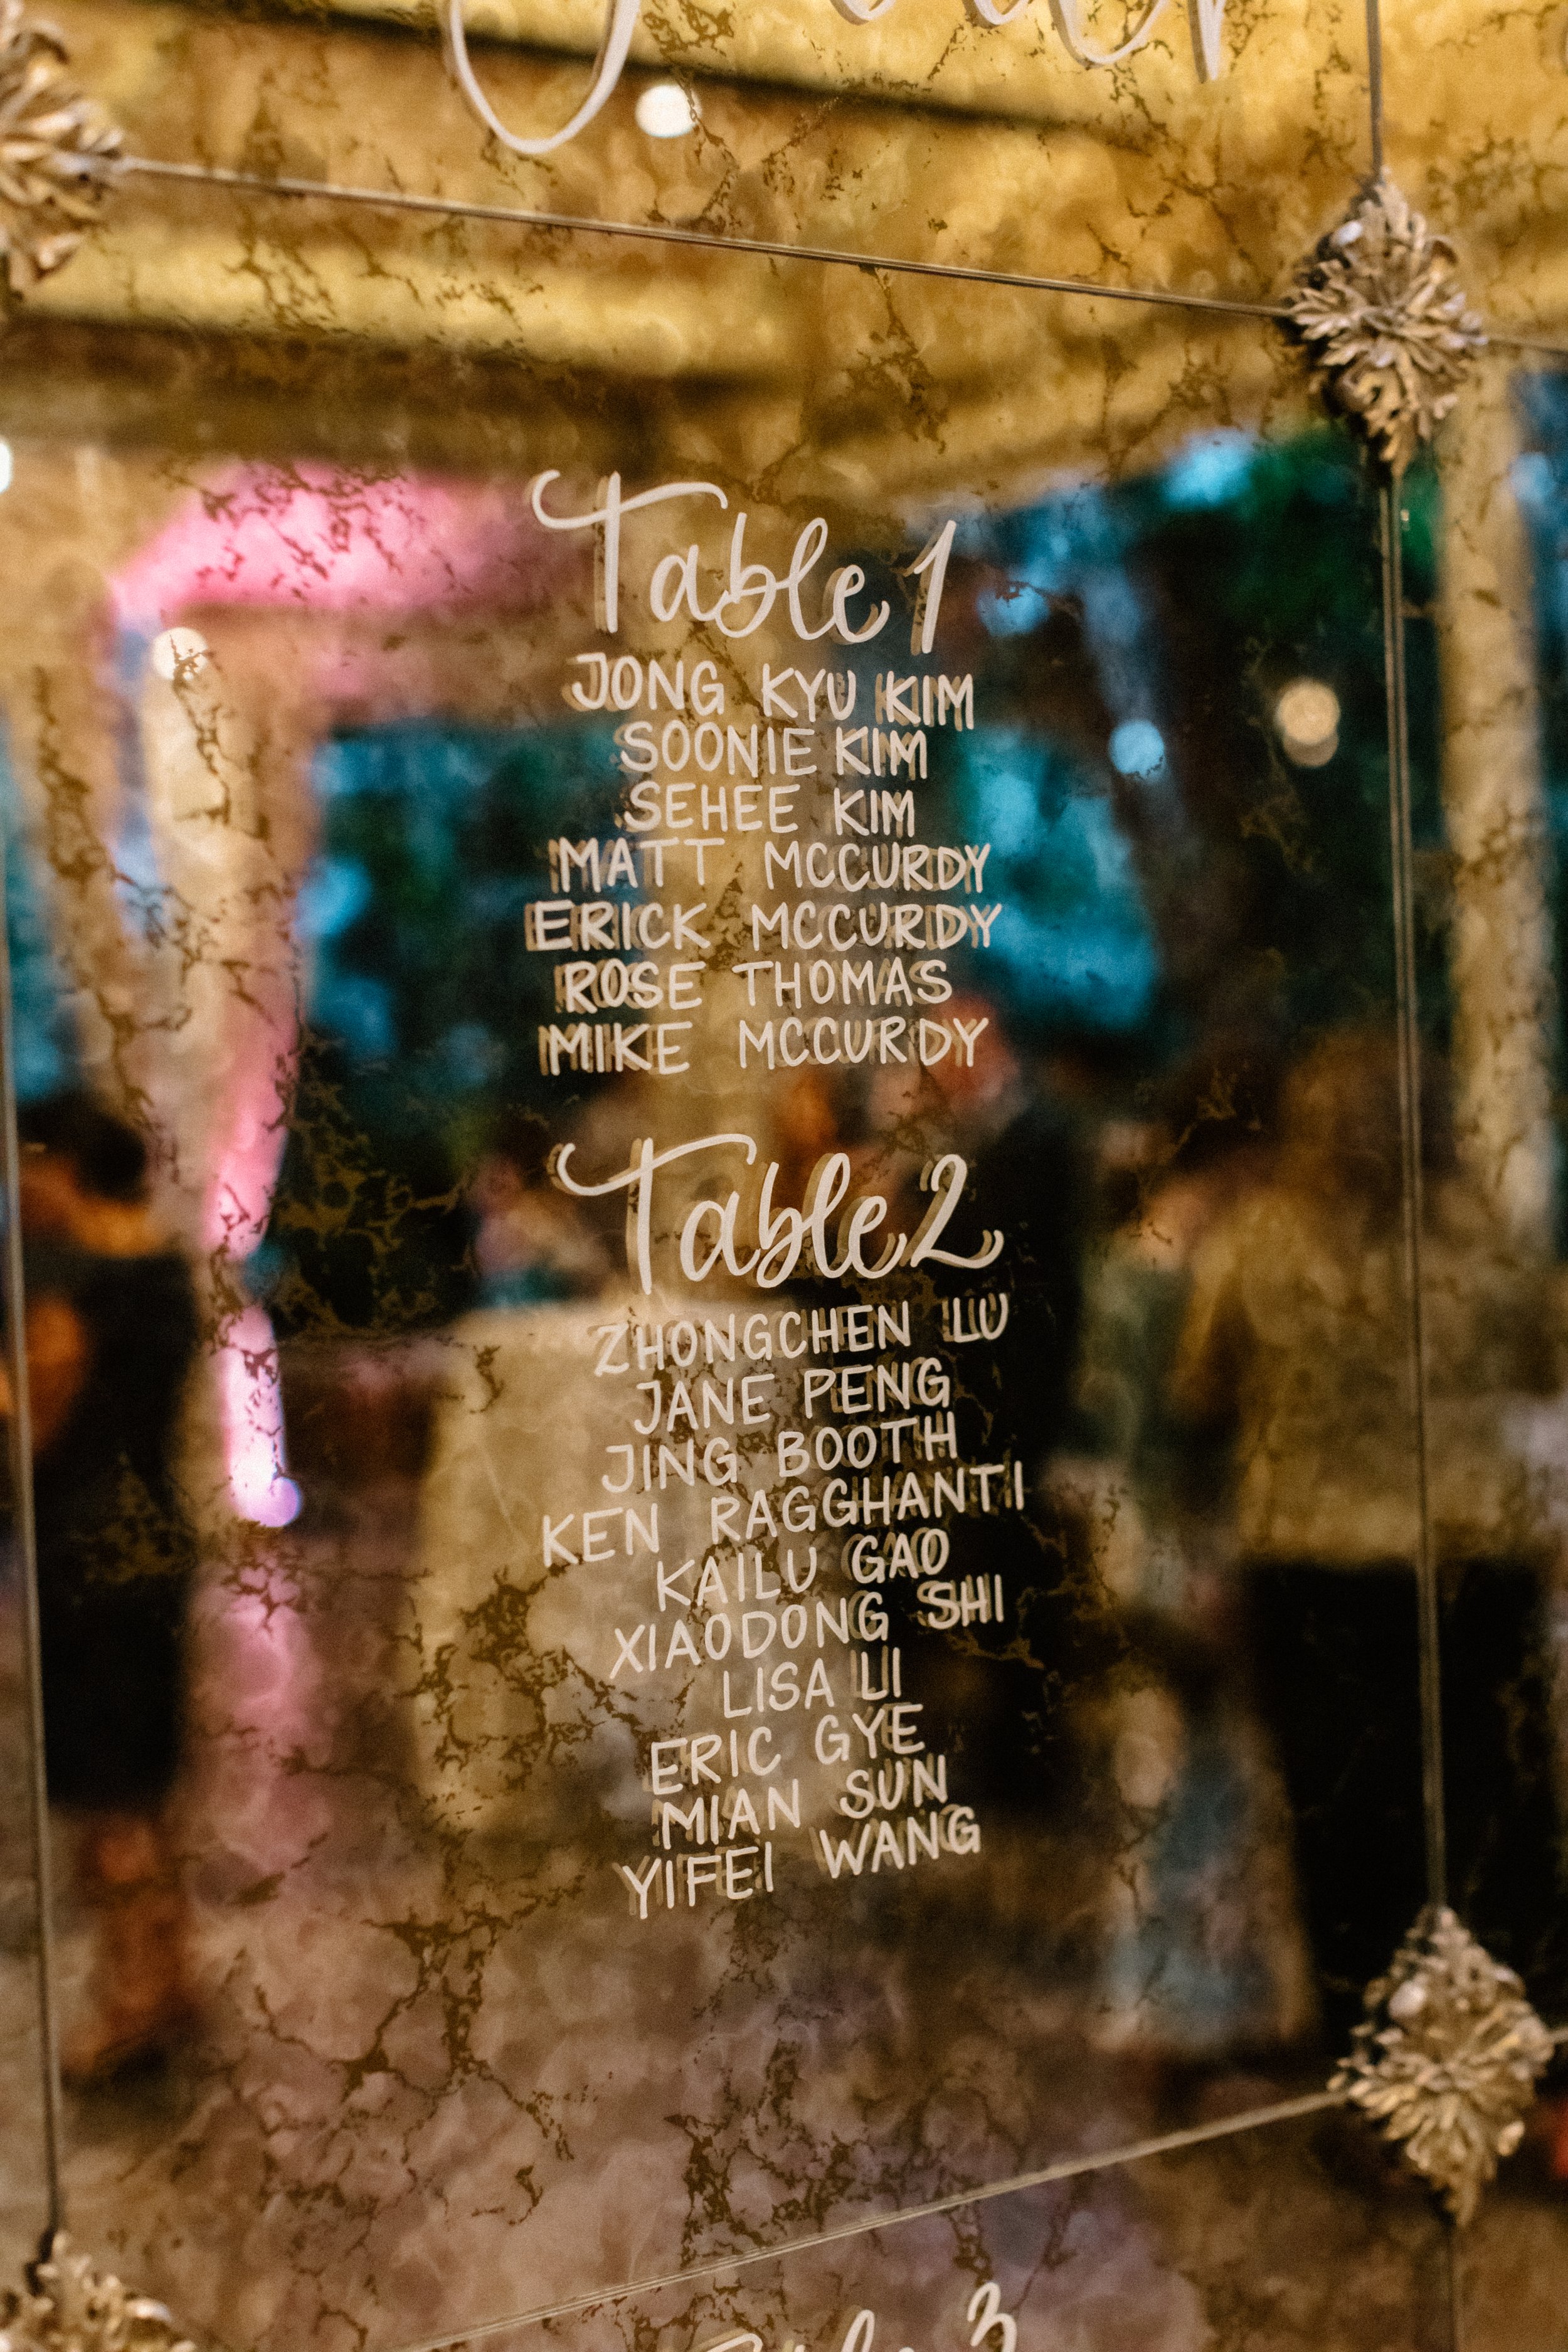 Table 1
JONG KYU KIM
SOONIE KIM
SEHEE KIM
MATT MCCURDY
ERICK MCCURDY
ROSE THOMAS
MIKE MCCURDY
Table 2
ZHONGCHEN LU
JANE PENG
JING BOOTH
KEN RAGGHANTI
KAILU GAO
XIAODONG SHI
LISA LI
ERIC GYE
MIAN SUN
YIFEI WANG
Table 3